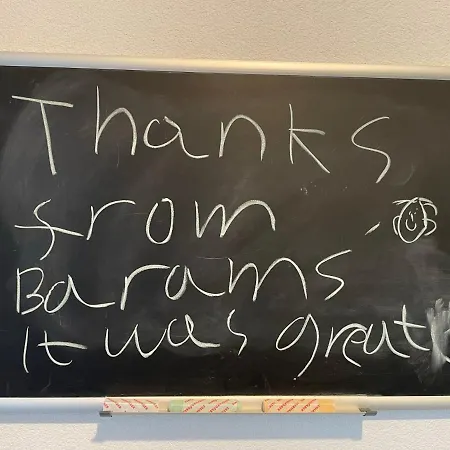 Thanks
from
Barams
It was great